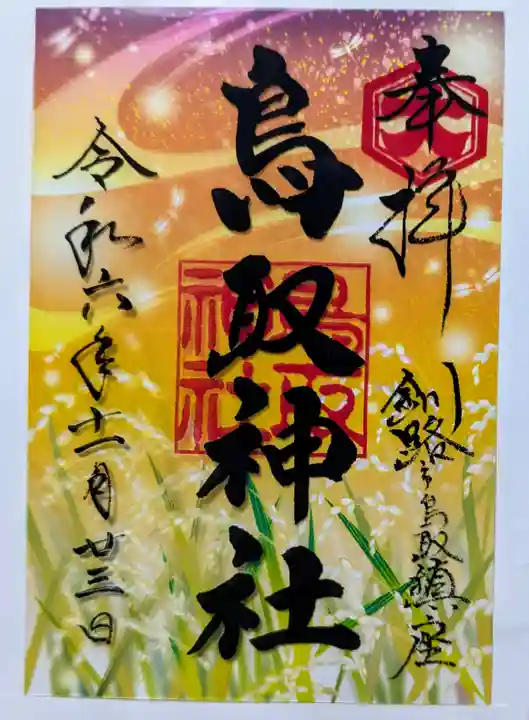 奉拝
釧路市鳥取鎮座
鳥取神社
鳥取
神社
令和六年十一月廿三日